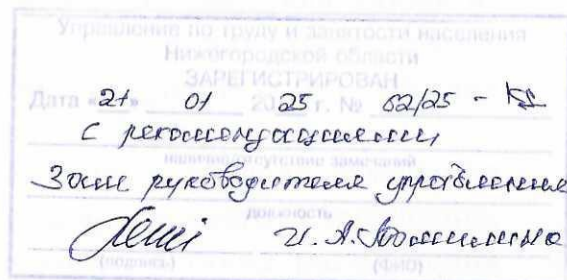 Управление по труду и занятости населения
Нижегородской области
ЗАРЕГИСТРИРОВАН
Дата «21» 01 2025 г. № 52/25 - КД
с рекомендациями
наличие/отсутствие замечаний
Зам. руководителя управления
должность
И. А.
(подпись) (ФИО)